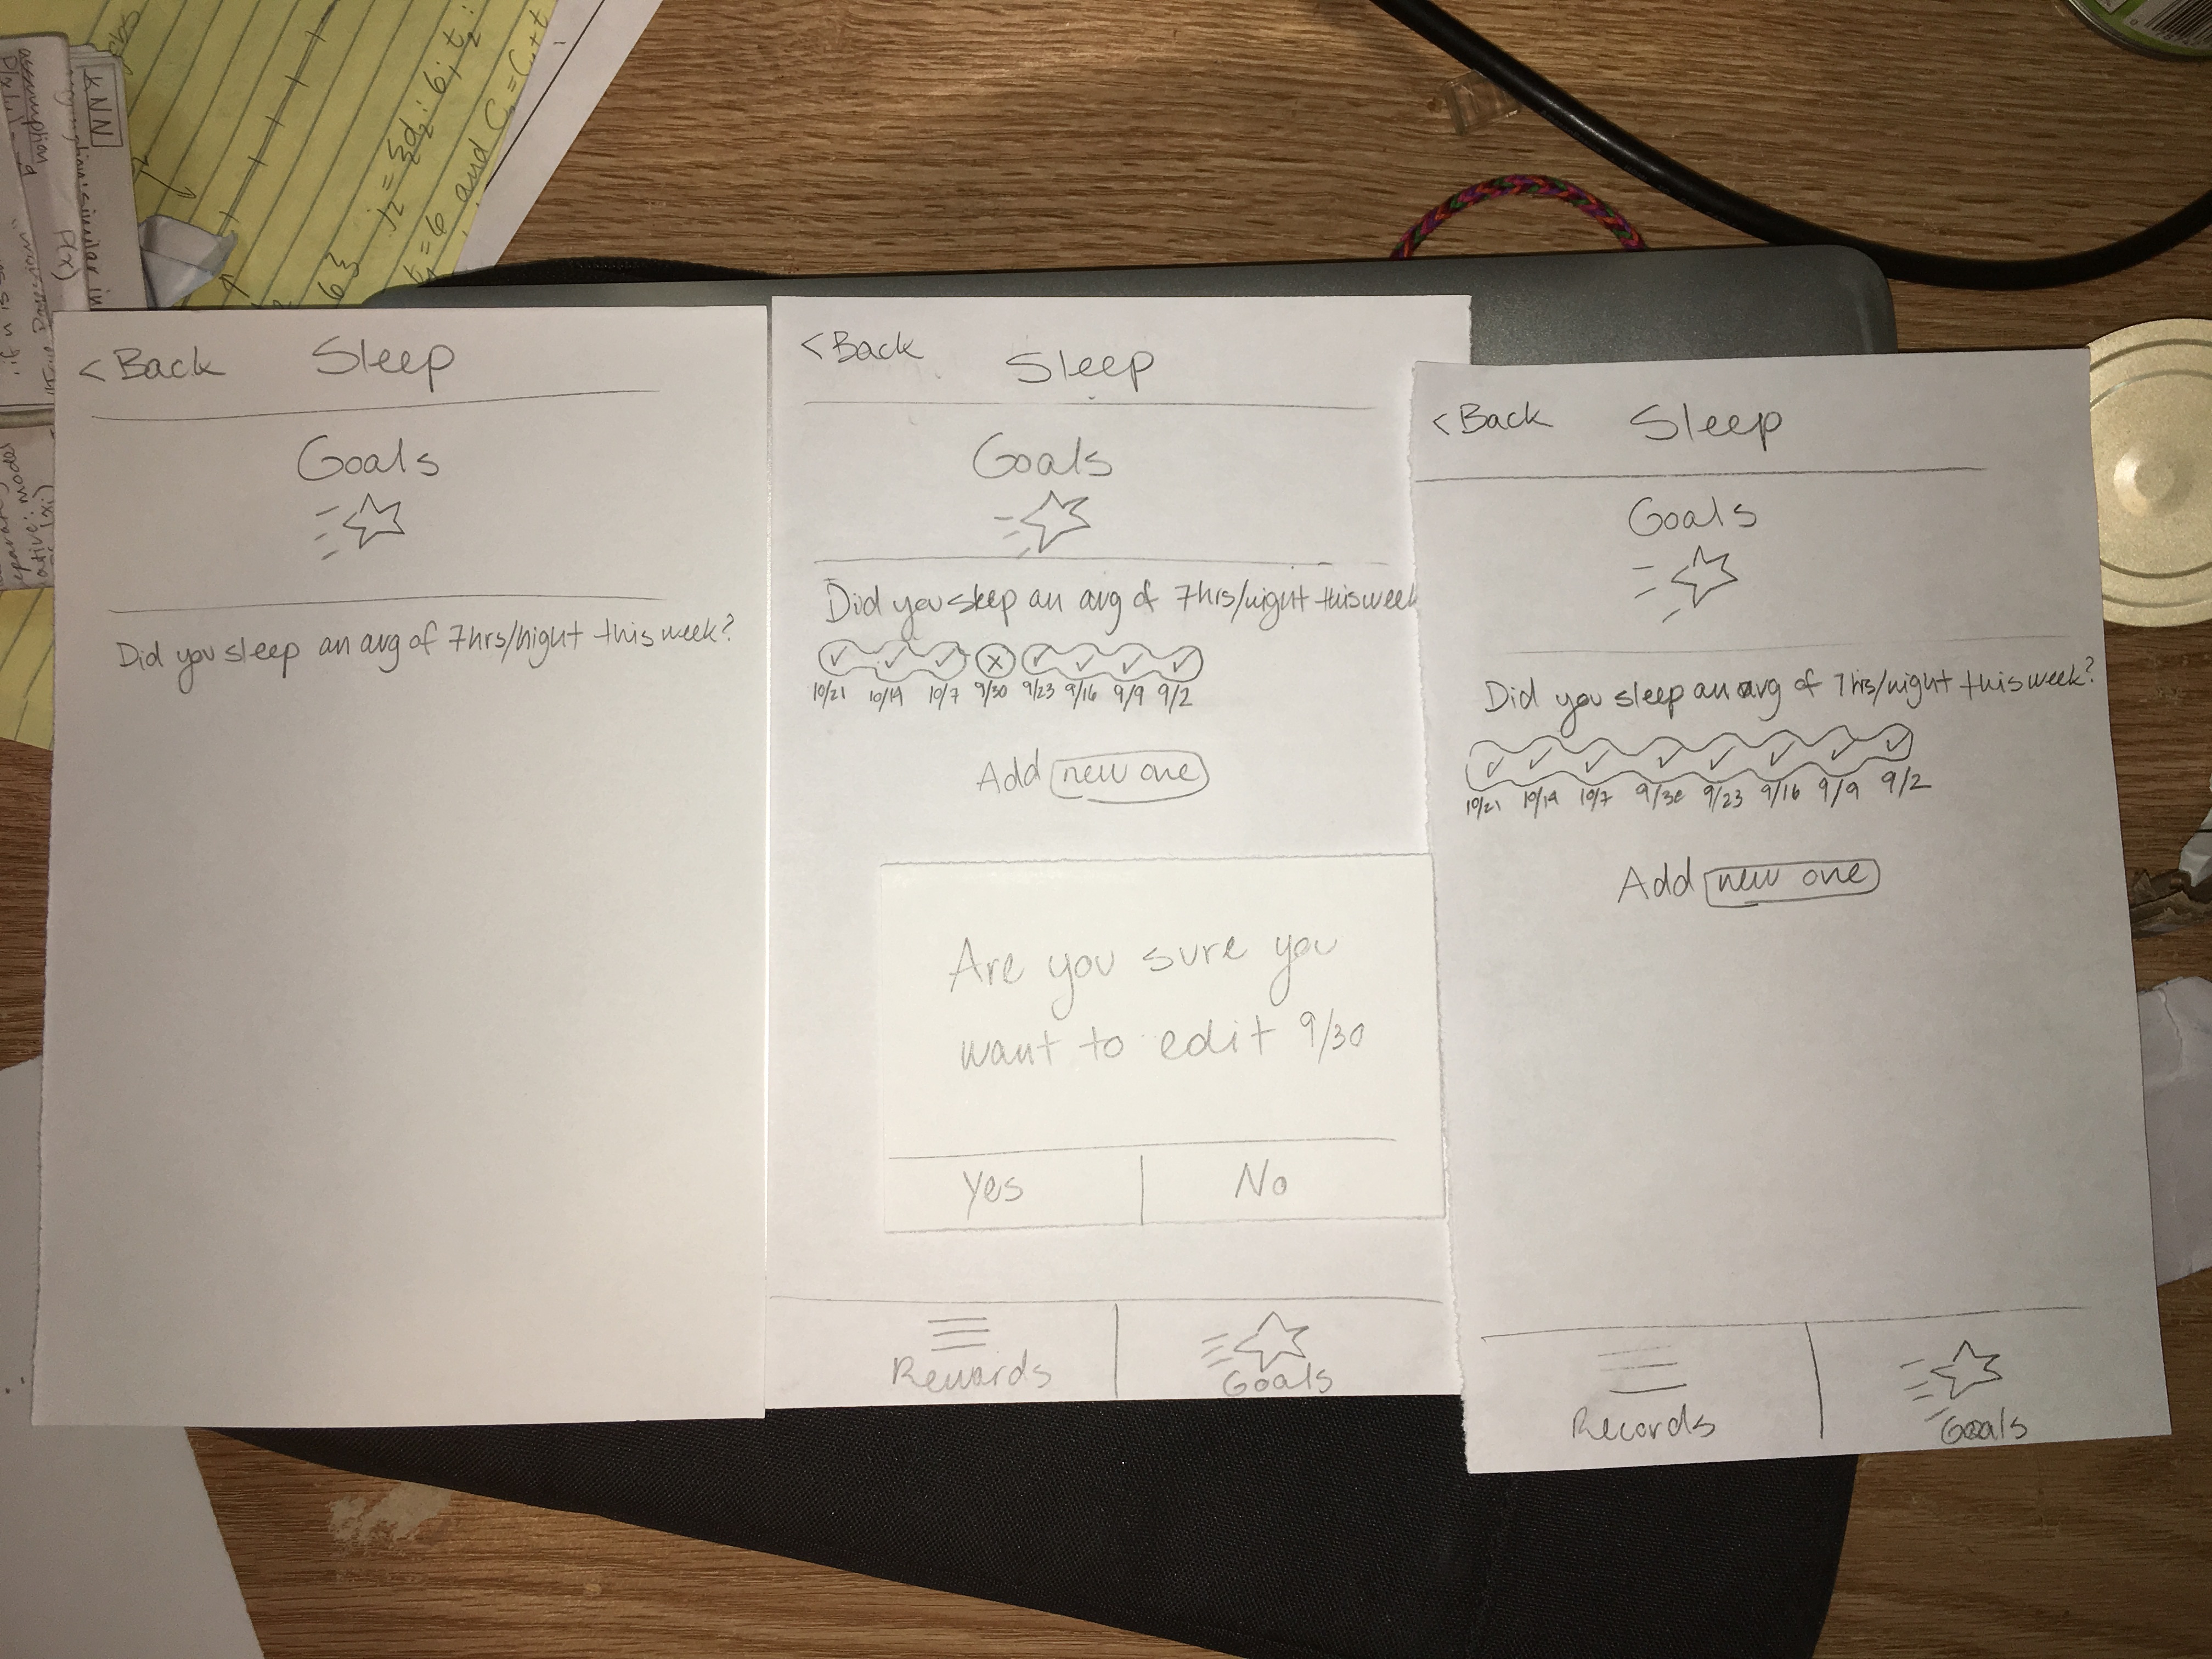 kNN
assumption: similar in
assumption
P(x)
j2 = {d2: 6, t2:
= 6 and
< Back Sleep
Goals
Did you sleep an avg of 7hrs/night this week?
< Back
Sleep
Goals
Did you sleep an avg of 7hrs/night this week
10/21 10/14 10/7 9/30 9/23 9/16 9/9 9/2
Add new one
Are you sure you
want to edit 9/30
Yes No
Rewards Goals
< Back Sleep
Goals
Did you sleep an avg of 7hrs/night this week?
10/21 10/14 10/7 9/30 9/23 9/16 9/9 9/2
Add new one
Records Goals